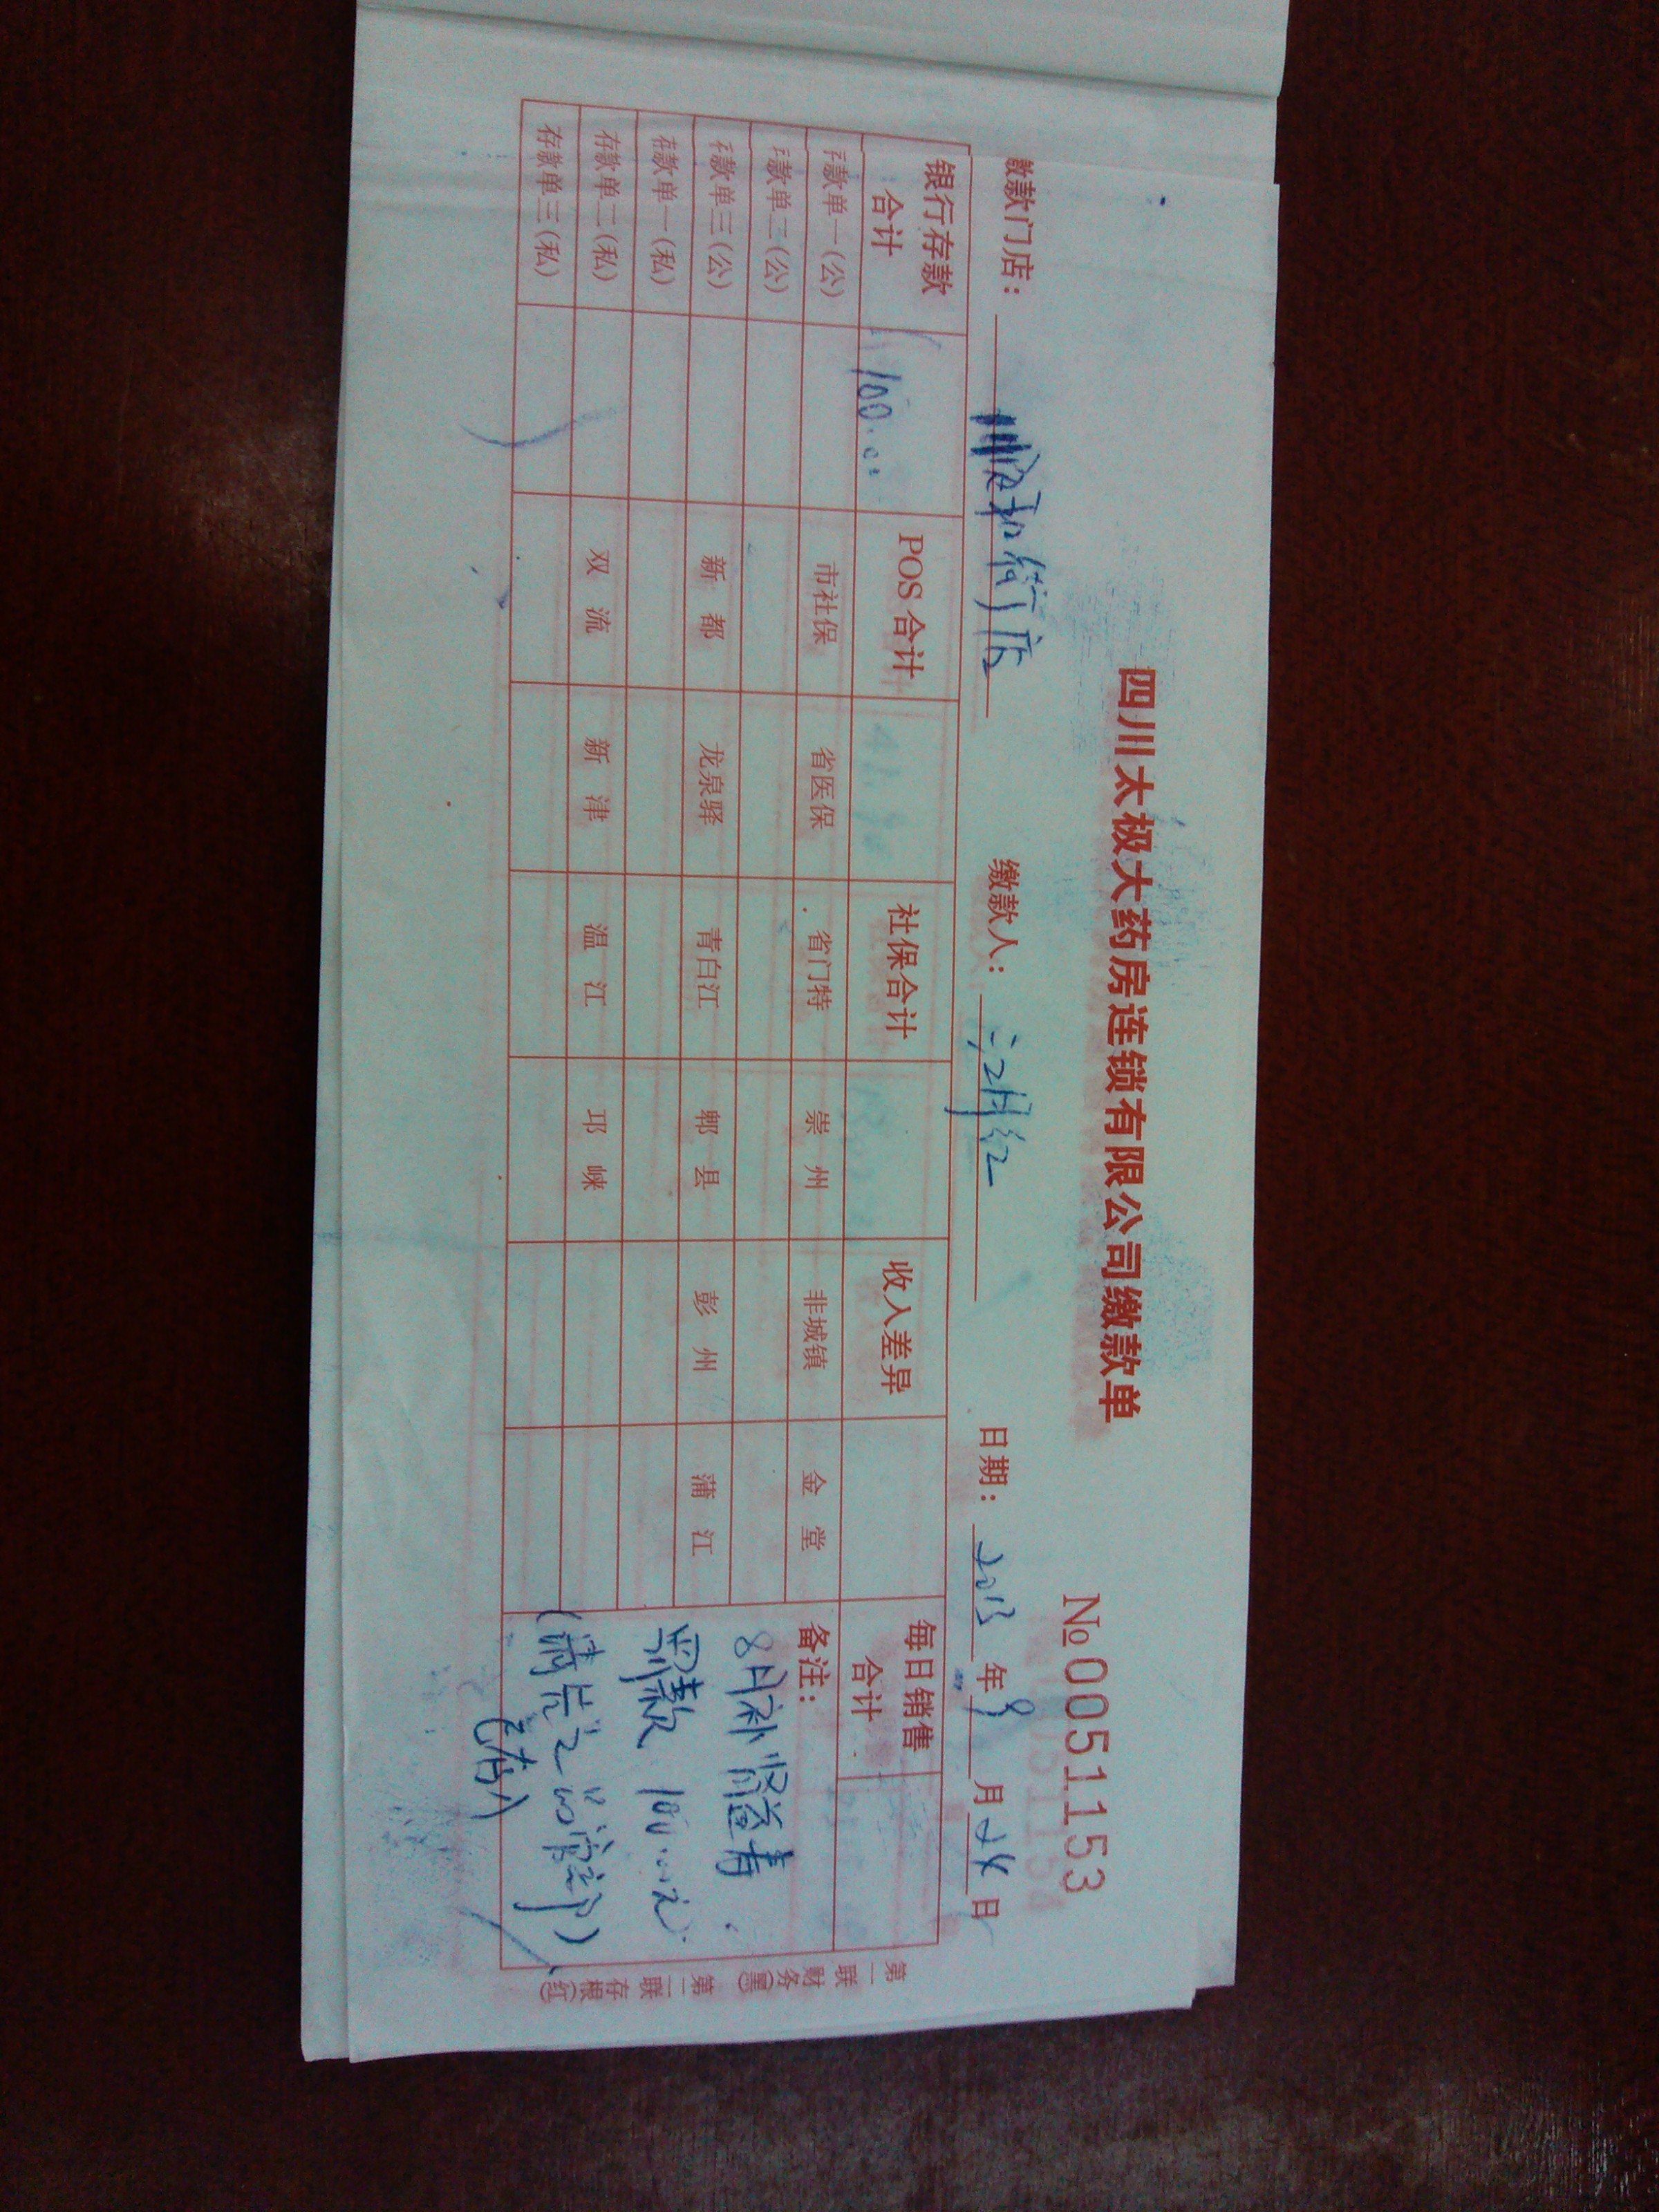 四川太极大药房连锁有限公司缴款单
№0051153
缴款门店： 街店 缴款人： 江月红 日期： 2013 年 9 月 24 日
银行存款合计 100.00 POS合计 社保合计 收入差异 每日销售合计
存款单一(公) 市社保 省医保 省门特 崇州 非城镇 金堂 备注：
存款单二(公)
存款单三(公) 新都 龙泉驿 青白江 郫县 彭州 蒲江
存款单一(私)
存款单二(私) 双流 新津 温江 邛崃
存款单三(私)
8月补肾益寿
罚款 100.00元
已存
第一联 财务(黑) 第二联 存根(红)